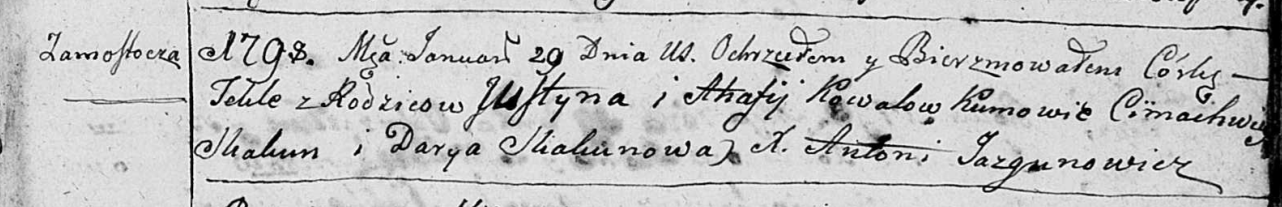 Zamostocza
1798. Mca Januar 29 Dnia us. Ochrzciłem y Bierzmowałem Córkę
Teklę z Rodzicow Justyna i Ahafij Kowalow Kumowie Cimachwiej
Skakun i Darya Skakunowa) X. Antoni Jazgunowicz